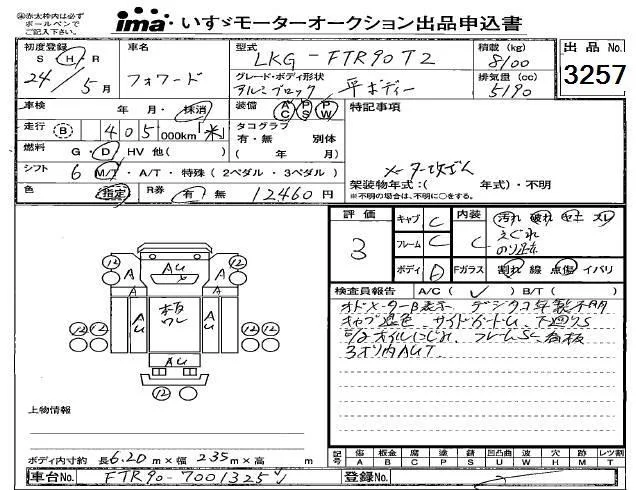 ※赤太枠内は必ず
ボールペンで
ご記入下さい。
ima いすゞモーターオークション出品申込書
初度登録 車名 型式 LKG-FTR90T2 積載 (kg) 8100 出品 No. 3257
S H R
24/5月 フォワード グレード・ボディ形状 アルミブロック 平ボディー 排気量 (cc) 5190
車検 年 月・抹消 装備 AC PS PW 特記事項
走行 B 405,000km「米」 タコグラフ 有・無 別体
燃料 G・D・HV 他( ) ( 年 月)
シフト 6 M/T・A/T・特殊(2ペダル・3ペダル) メーター改ざん
架装物年式:( 年式)・不明
色 指定 R券 有 無 12460円 ※不明の場合は、不明に○をする。
評価 3 キャブ C 内装 C 汚れ 破れ セエ ズレ
フレーム C えぐれ
のり跡
ボディ Fガラス 割れ 線 点傷 イバリ
検査員報告 A/C( ✓ ) B/T( )
オドメーターB表示 デジタコ年製不明
キャブ退色 サイドガード
オイルにじみ フレームS 看板
3オリ内AUT
12 A AU A 12
A A
AU 板 AU
ワレ
12 12
AU
12
上物情報
ボディ内寸約 長 6.20 m×幅 2.35 m×高 m
記号 傷 板金 腐 塗 錆 凹凸曲 波 穴 跡 レツ割
A B C P S U W H M T
車台No. FTR90-7001325 登録No.